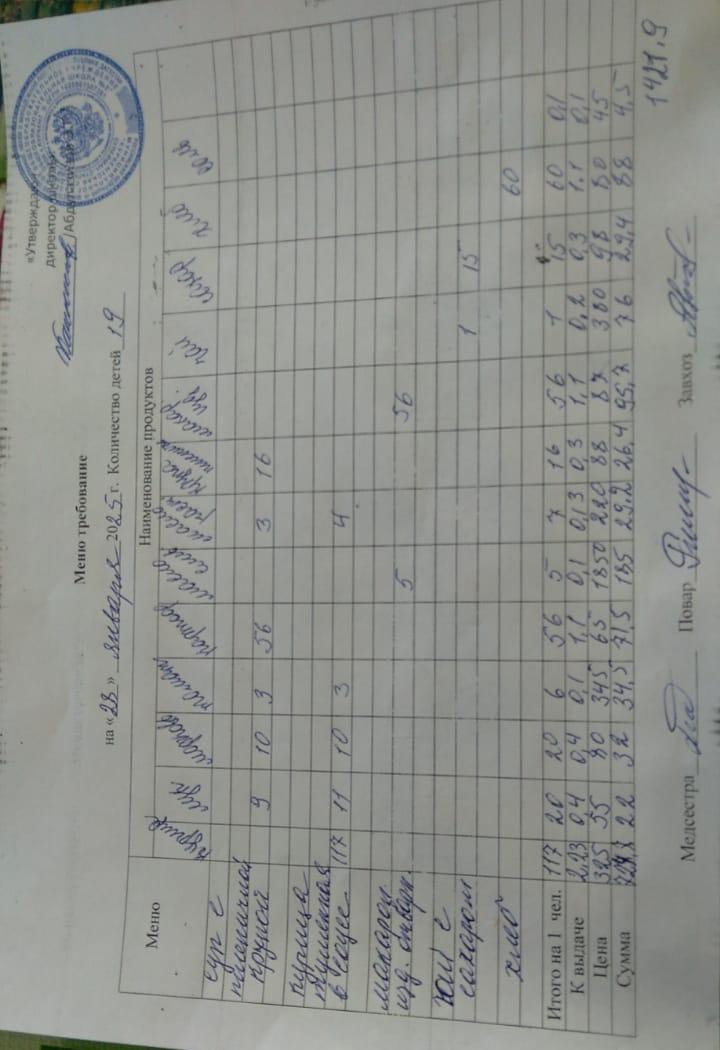 «Утверждаю»
директор школы
/Абдулгапурова
Меню требование
на «28» января 2025 г. Количество детей 19
Меню
Наименование продуктов
курица лук морковь томат картоф масло слив масло раст крупа пшенич макар изд. чай сахар хлеб соль
суп с
пшеничной
крупой 9 10 3 56 3 16
курица
тушенная
в соусе 117 11 10 3 4
макарон
изд. отварн. 5 56
чай с
сахаром 1 15
хлеб 60
Итого на 1 чел. 117 20 20 6 56 5 7 16 56 1 15 60 0,1
К выдаче 2,23 0,4 0,4 0,1 1,1 0,1 0,13 0,3 1,1 0,2 0,3 1.1 0,1
Цена 325 55 80 345 65 1850 220 88 87 380 98 80 45
Сумма 22 32 34,5 71,5 185 29,2 26,4 95,7 76 29,4 88 4,5
1421,9
Медсестра Повар Завхоз